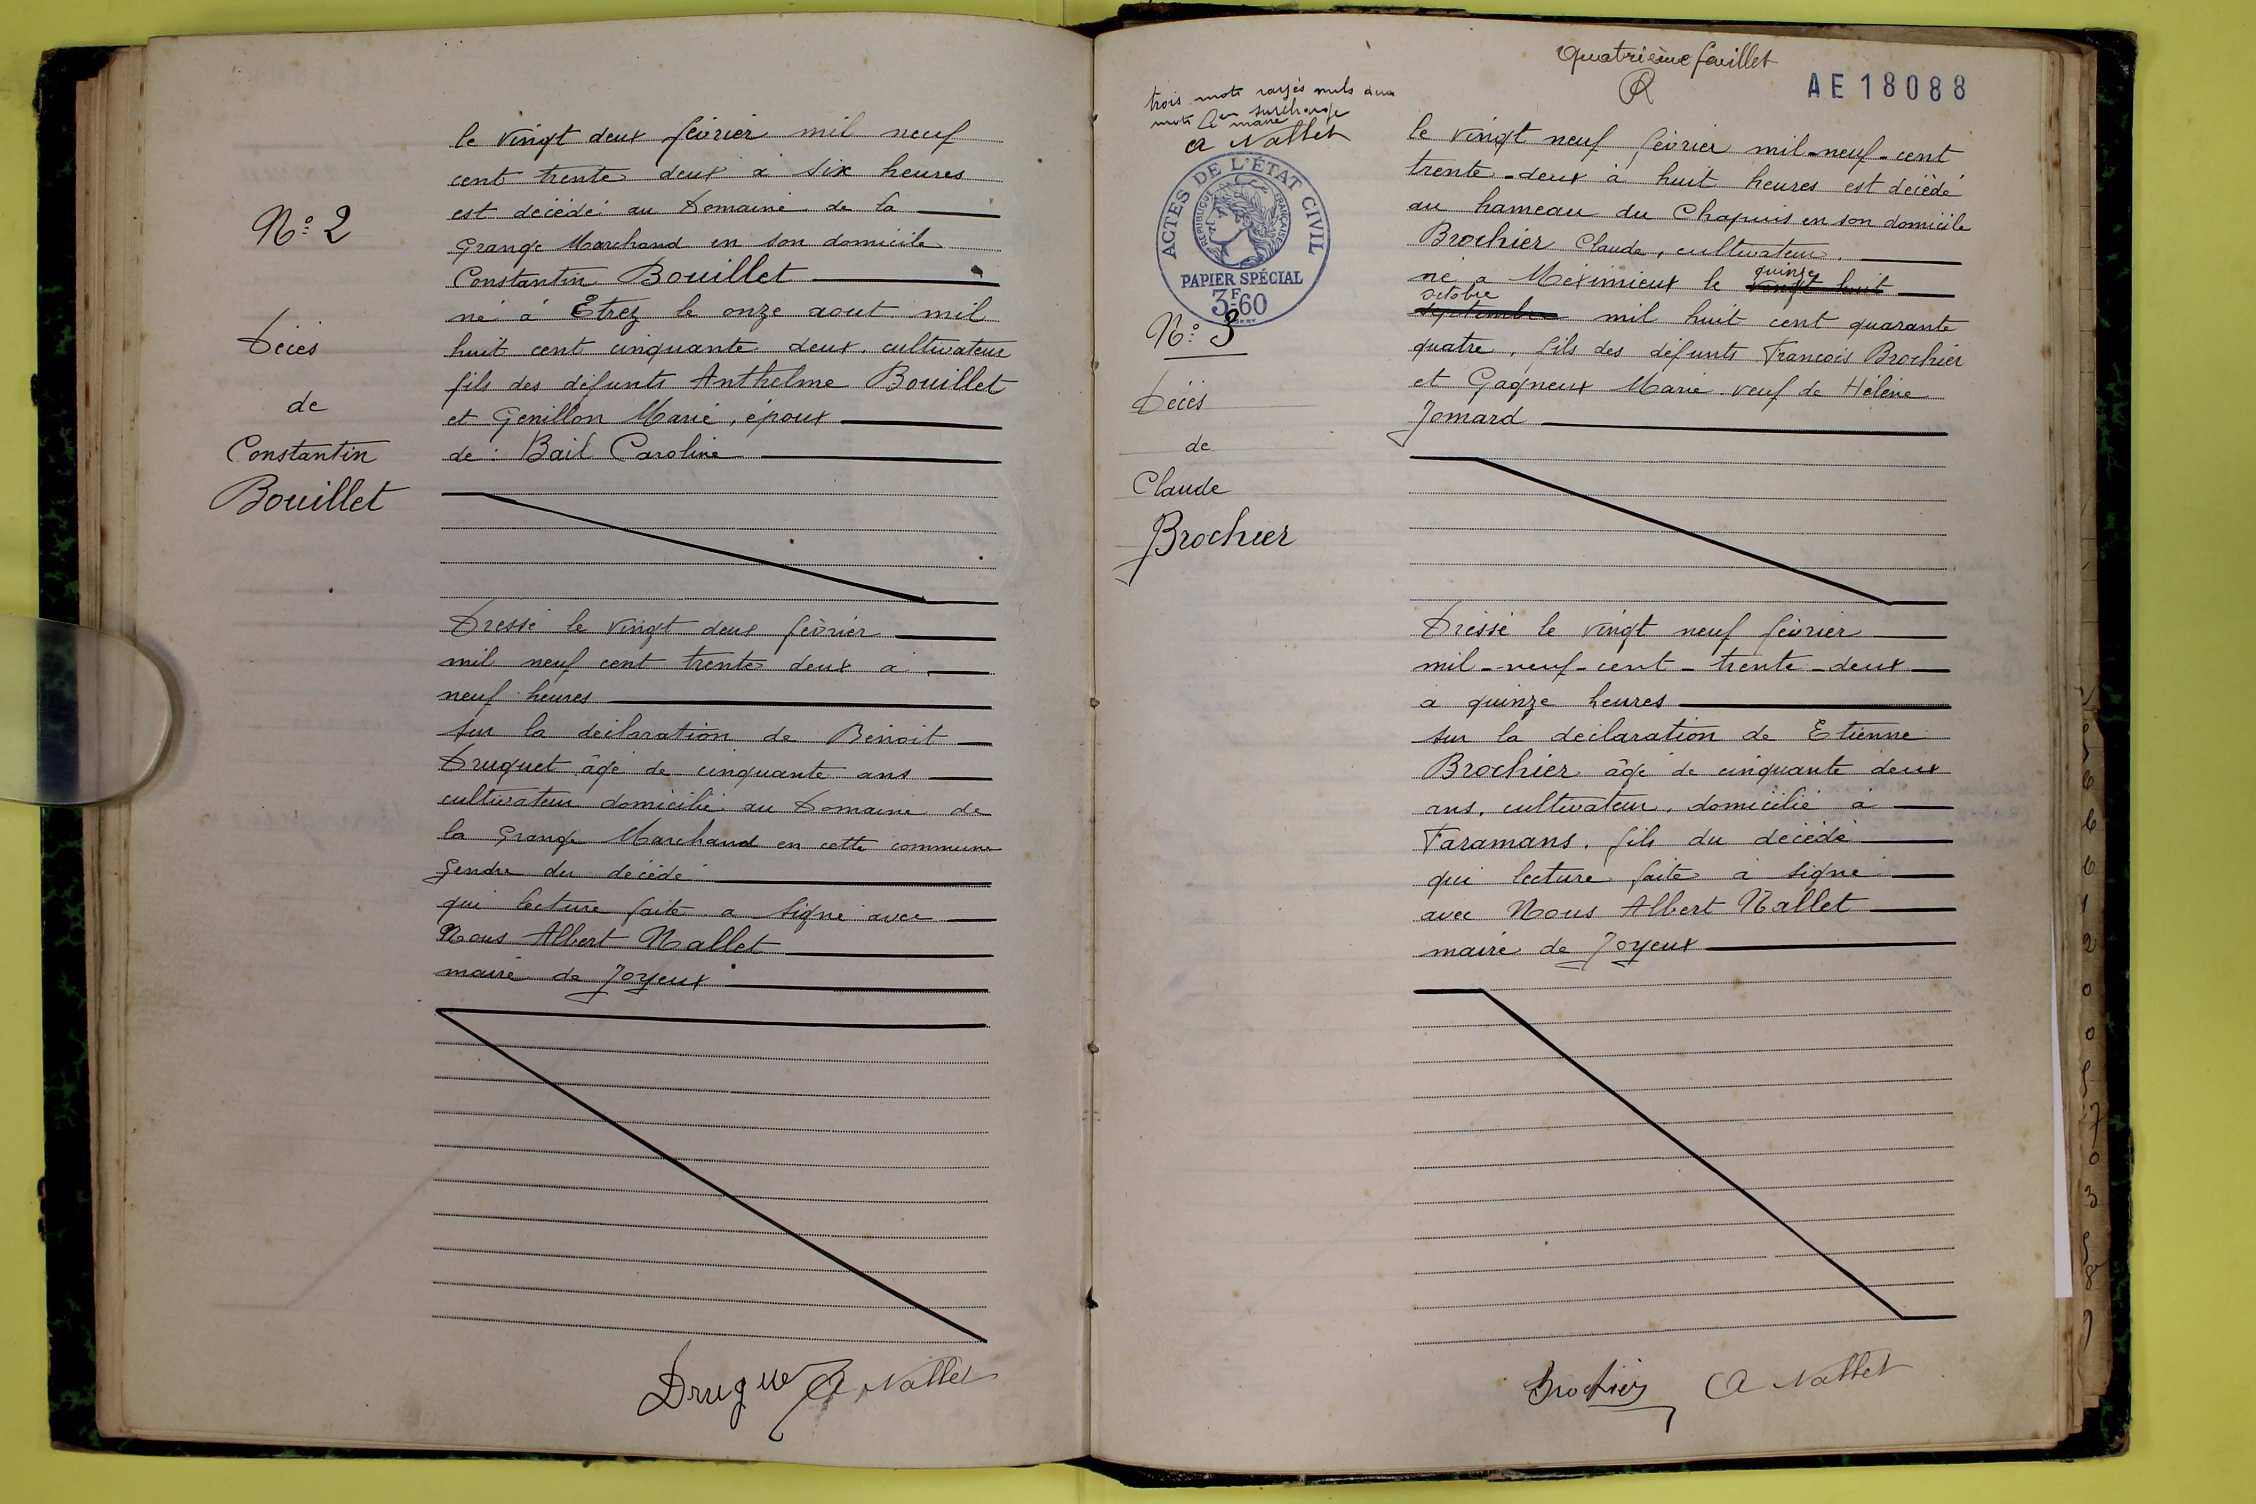 N° 2
Décès
de
Constantin
Bouillet
le vingt deux février mil neuf
cent trente deux à six heures
est décédé au Domaine de la
Grange Marchand en son domicile
Constantin Bouillet
né à Etrez le onze aout mil
huit cent cinquante deux, cultivateur
fils des défunts Anthelme Bouillet
et Genillon Marie, époux
de Bail Caroline
Dressé le vingt deux février
mil neuf cent trente deux à
neuf heures
sur la déclaration de Benoit
Druguet âgé de cinquante ans
cultivateur domicilié au Domaine de
la Grange Marchand en cette commune
gendre du décédé
qui lecture faite a signé avec
Nous Albert Nallet
maire de Joyeux
Druguet A Nallet
Quatrième feuillet
AE18088
trois mots rayés nuls deux
mots en surcharge
maire
A Nallet
ACTES DE L'ÉTAT CIVIL
RÉPUBLIQUE FRANÇAISE
PAPIER SPÉCIAL
3F60
N° 3
Décès
de
Claude
Brochier
le vingt neuf février mil-neuf-cent
trente-deux à huit heures est décédé
au hameau du Chapuis en son domicile
Brochier Claude, cultivateur.
quinze
né à Méximieux le vingt huit
octobre
septembre mil huit cent quarante
quatre, fils des défunts François Brochier
et Gagneux Marie veuf de Hélène
Jomard
Dressé le vingt neuf février
mil-neuf-cent-trente-deux
à quinze heures
sur la déclaration de Etienne
Brochier âgé de cinquante deux
ans, cultivateur, domicilié à
Faramans, fils du décédé
qui lecture faite à signé
avec Nous Albert Nallet
maire de Joyeux
Brochier A Nallet